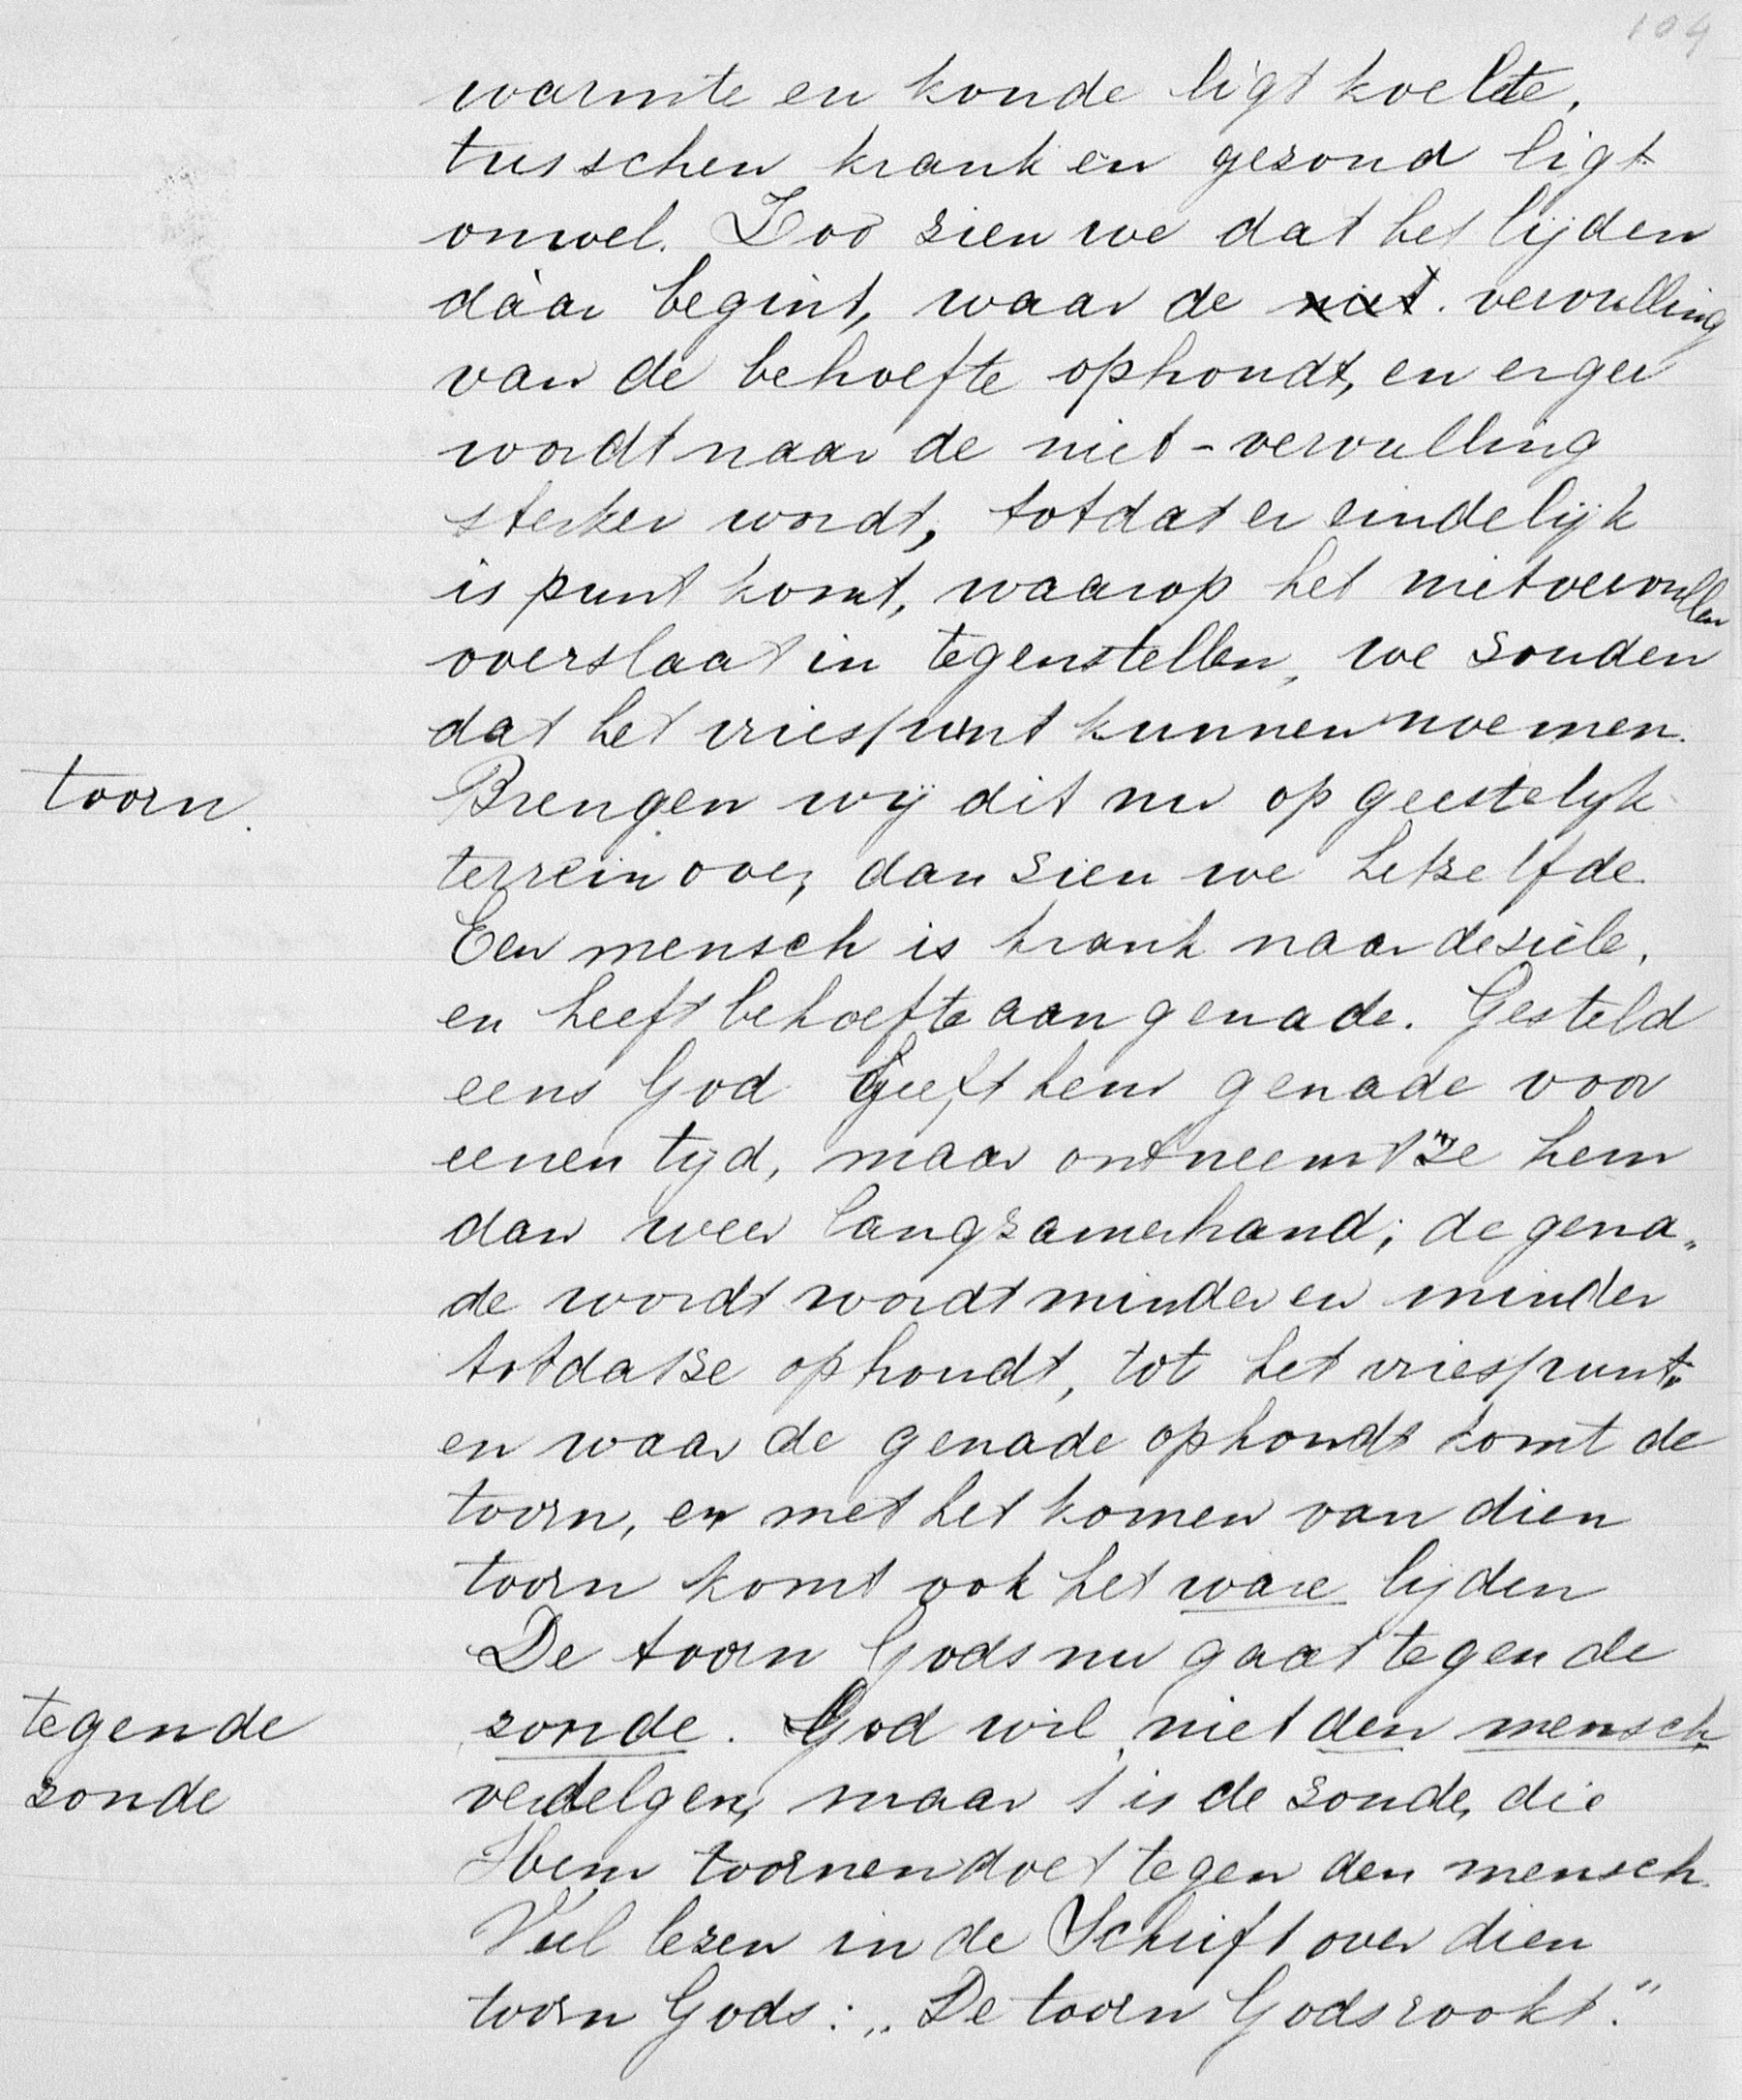 104
warmte en koude ligt koelte,
tusschen krank en gezond ligt
onwel. Zoo zien we dat het lijden
dáár begint, waar de niet. vervulling
van de behoefte ophoudt, en erger
wordt naar de niet-vervulling
sterker wordt, totdat er eindelijk
is punt komt, waarop het nietvervullen
overslaat in tegenstellen, we zouden
dat het vriespunt kunnen noemen.
toorn.
Brengen wij dit nu op geestelijk
terrein over, dan zien we hetzelfde.
Een mensch is krank naar de ziele,
en heeft behoefte aan genade. Gesteld
eens God Geeft hem genade voor
eenen tijd, maar ontneemt ze hem
dan weer langzamerhand; de gena„
de wordt wordt minder en minder
totdat ze ophoudt, tot het vriespunt.
en waar de genade ophoudt komt de
toorn, en met het komen van dien
toorn komt ook het ware lijden
De toorn Gods nu gaat tegen de
tegen de
zonde
zonde. God wil niet den mensch
verdelgen, maar 't is de zonde, die
Hem toornen doet tegen den mensch.
Veel lezen in de Schrift over dien
toorn Gods: „De toorn Gods rookt."